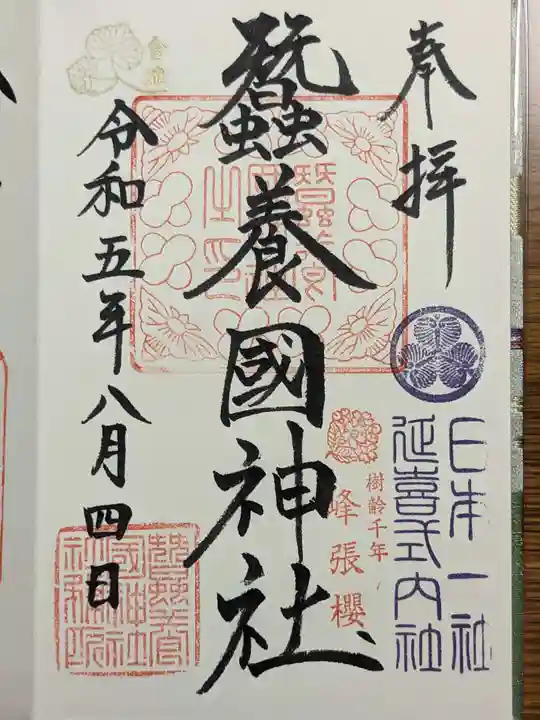 奉拝
日本一社
延喜式内社
樹齢千年
峰張櫻
蠶養國神社
令和五年八月四日